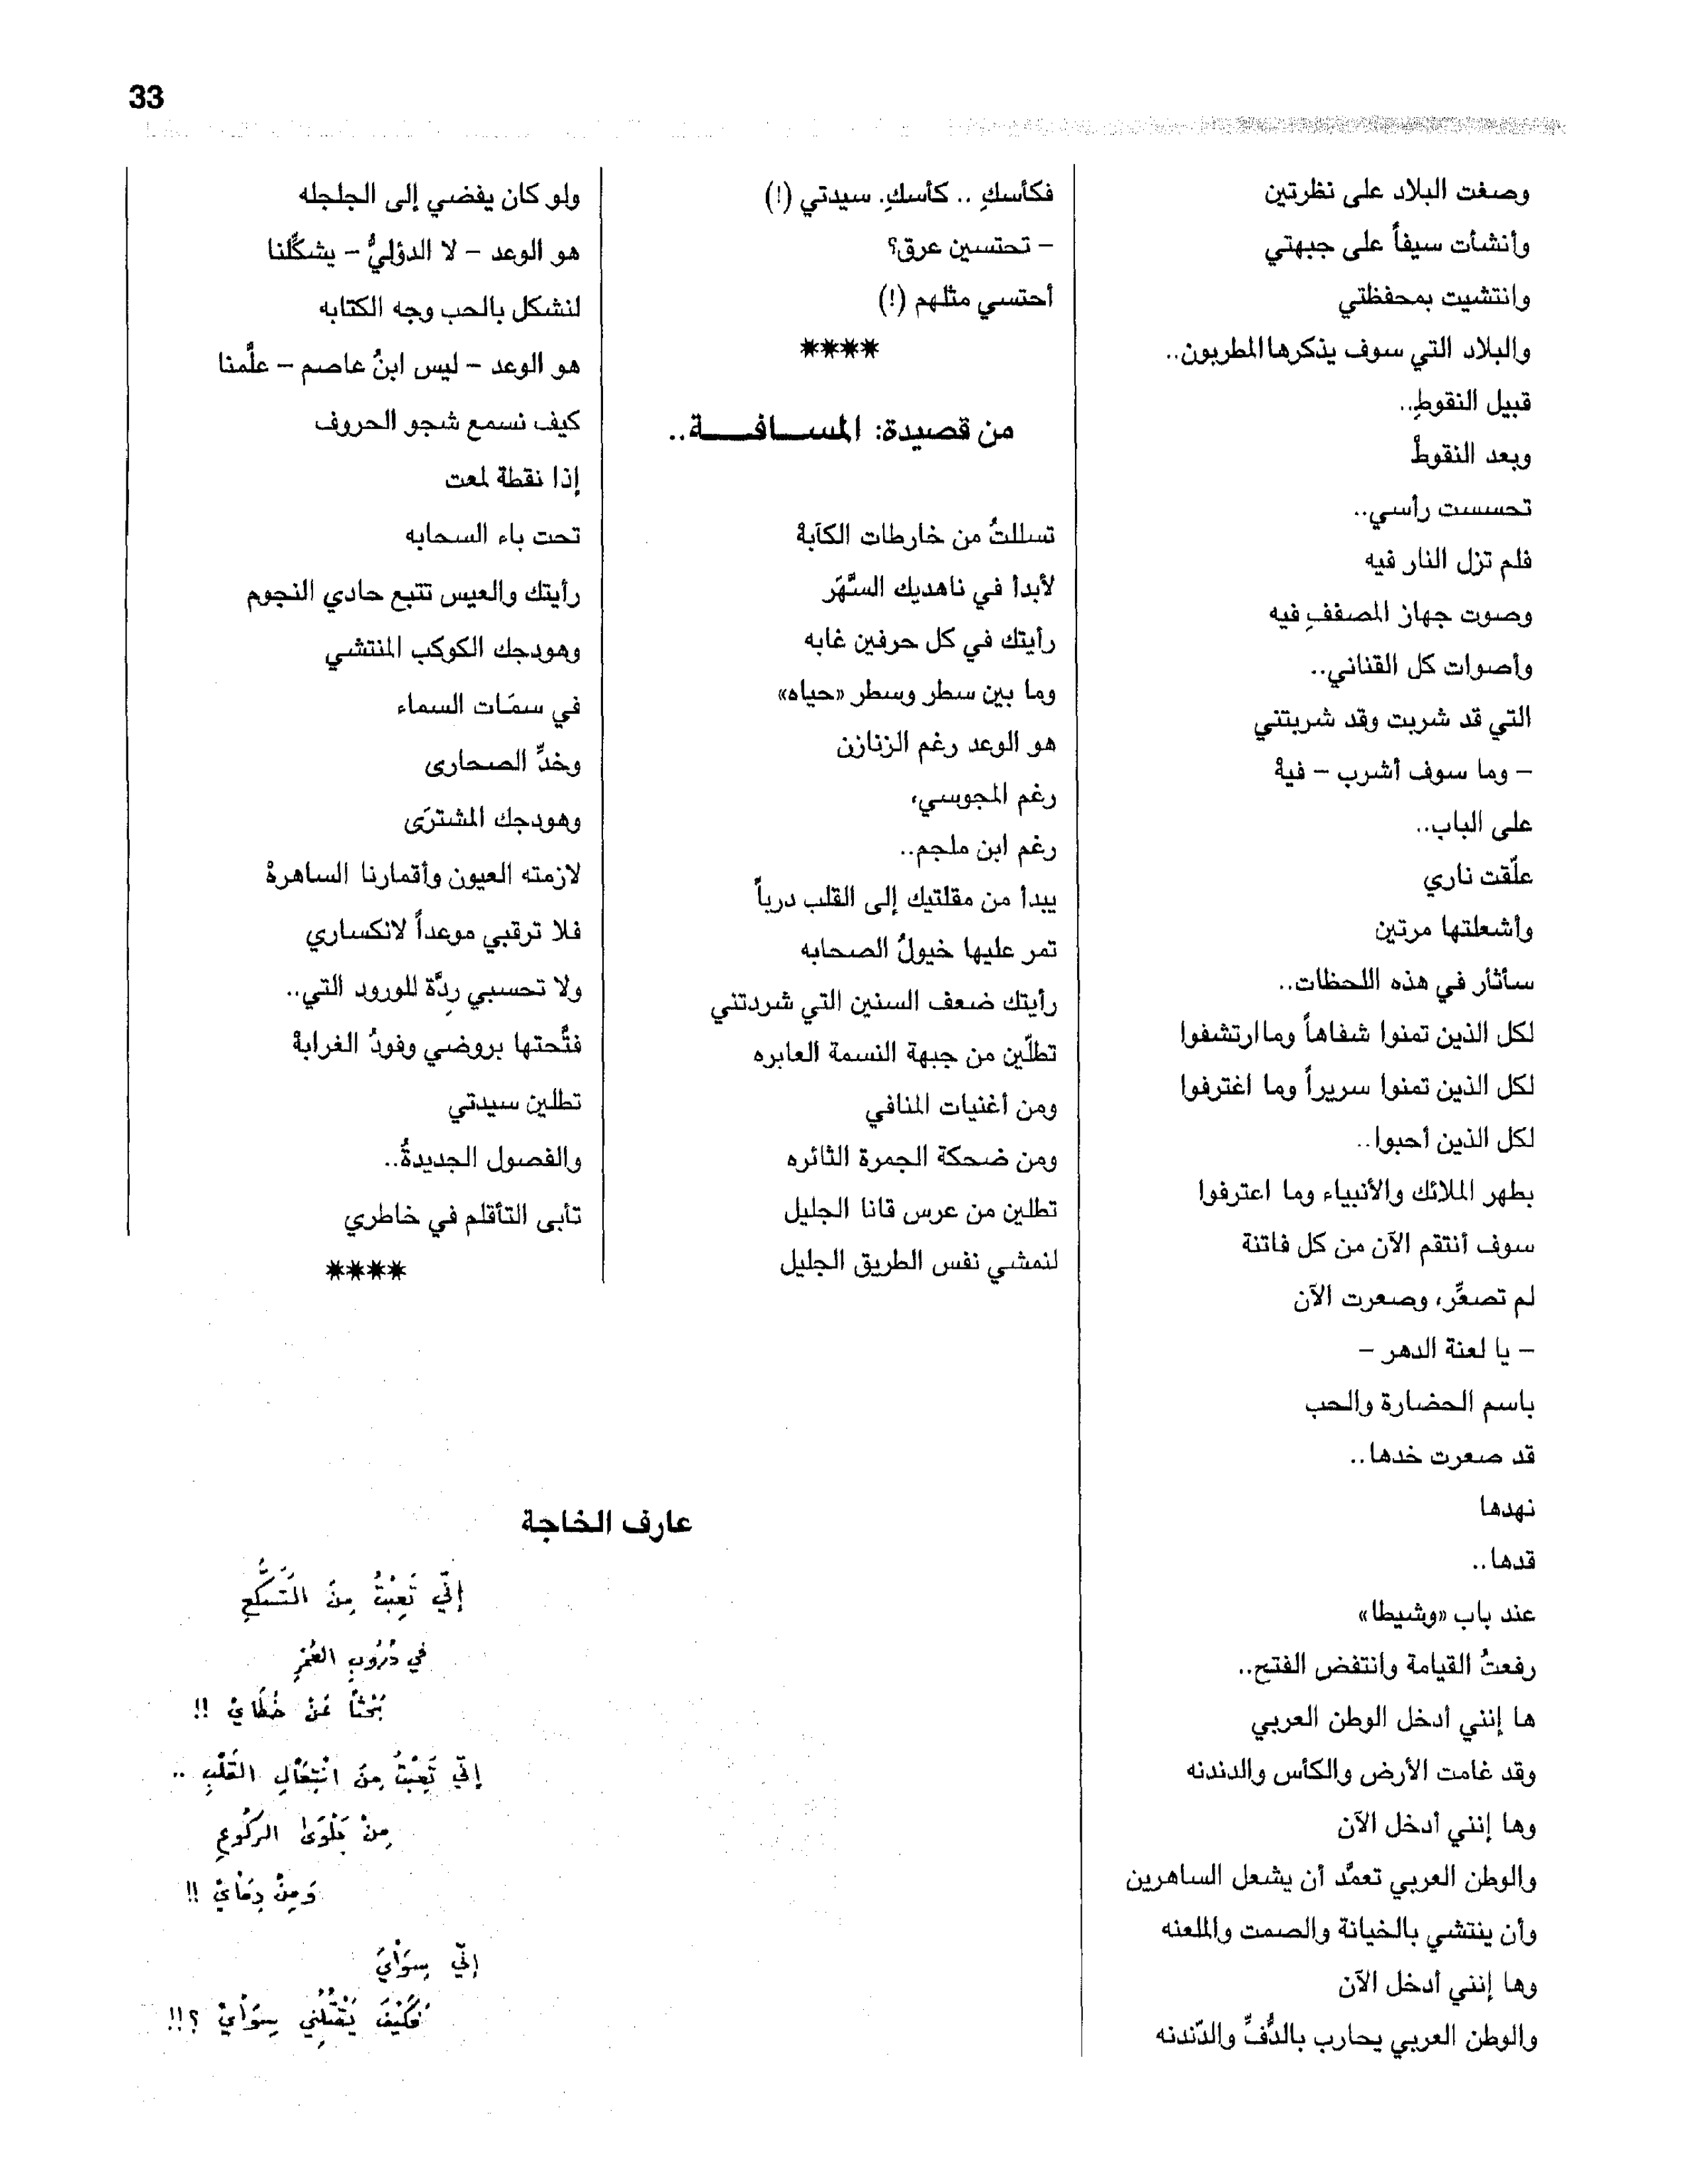 33
وصغت البلاد على نظرتين
وأنشأت سيفاً على جبهتي
وانتشيت بمحفظتي
والبلاد التي سوف يذكرها المطربون..
قبيل النقوطِ..
وبعد النقوطْ
تحسست رأسي..
فلم تزل النار فيه
وصوت جهاز المصففِ فيه
وأصوات كل القناني..
التي قد شربت وقد شربتني
– وما سوف أشرب – فيهْ
على الباب..
علّقت ناري
وأشعلتها مرتين
سأثأر في هذه اللحظات..
لكل الذين تمنوا شفاهاً وما ارتشفوا
لكل الذين تمنوا سريراً وما اغترفوا
لكل الذين أحبوا..
بطهر الملائك والأنبياء وما اعترفوا
سوف أنتقم الآن من كل فاتنة
لم تصعِّر، وصعرت الآن
– يا لعنة الدهر –
باسم الحضارة والحب
قد صعرت خدها..
نهدها
قدها..
عند باب «وشيطا»
رفعتُ القيامة وانتفض الفتح..
ها إنني أدخل الوطن العربي
وقد غامت الأرض والكأس والدندنه
وها إنني أدخل الآن
والوطن العربي تعمَّد أن يشعل الساهرين
وأن ينتشي بالخيانة والصمت والملعنه
وها إنني أدخل الآن
والوطن العربي يحارب بالدُّفِّ والدّندنه
فكأسكِ .. كأسكِ. سيدتي (!)
– تحتسين عرق؟
أحتسي مثلهم (!)
****
من قصيدة: المســافـــــة..
تسللتُ من خارطات الكآبهْ
لأبدأ في ناهديك السَّهَر
رأيتك في كل حرفين غابه
وما بين سطر وسطر «حياه»
هو الوعد رغم الزنازن
رغم المجوسي،
رغم ابن ملجم..
يبدأ من مقلتيك إلى القلب درباً
تمر عليها خيولُ الصحابه
رأيتك ضعف السنين التي شردتني
تطلّين من جبهة النسمة العابره
ومن أغنيات المنافي
ومن ضحكة الجمرة الثائره
تطلين من عرس قانا الجليل
لنمشي نفس الطريق الجليل
ولو كان يفضي إلى الجلجله
هو الوعد – لا الدؤليُّ – يشكّلنا
لنشكل بالحب وجه الكتابه
هو الوعد – ليس ابنُ عاصم – علَّمنا
كيف نسمع شجو الحروف
إذا نقطة لمعت
تحت باء السحابه
رأيتك والعيس تتبع حادي النجوم
وهودجك الكوكب المنتشي
في سمَات السماء
وخدِّ الصحارى
وهودجك المشترَى
لازمته العيون وأقمارنا الساهرهْ
فلا ترقبي موعداً لانكساري
ولا تحسبي رِدَّة للورود التي..
فتَّحتها بروضي وفودُ الغرابهْ
تطلين سيدتي
والفصول الجديدةُ..
تأبى التأقلم في خاطري
****
عارف الخاجة
إنّي تَعِبْتُ مِنَ التَسَكُّعِ
في دُرُوبِ العُمْرِ
بَحْثاً عَنْ خُطَايْ !!
إنّي تَعِبْتُ مِنْ انْتِعَالِ القَلْبِ ..
مِنْ بَلْوَى الرُكُوعِ
وَمِنْ دِمَايْ !!
إنّي سِوَايَ
فَكَيْفَ يَقْتُلُنِي سِوَايْ ؟!!